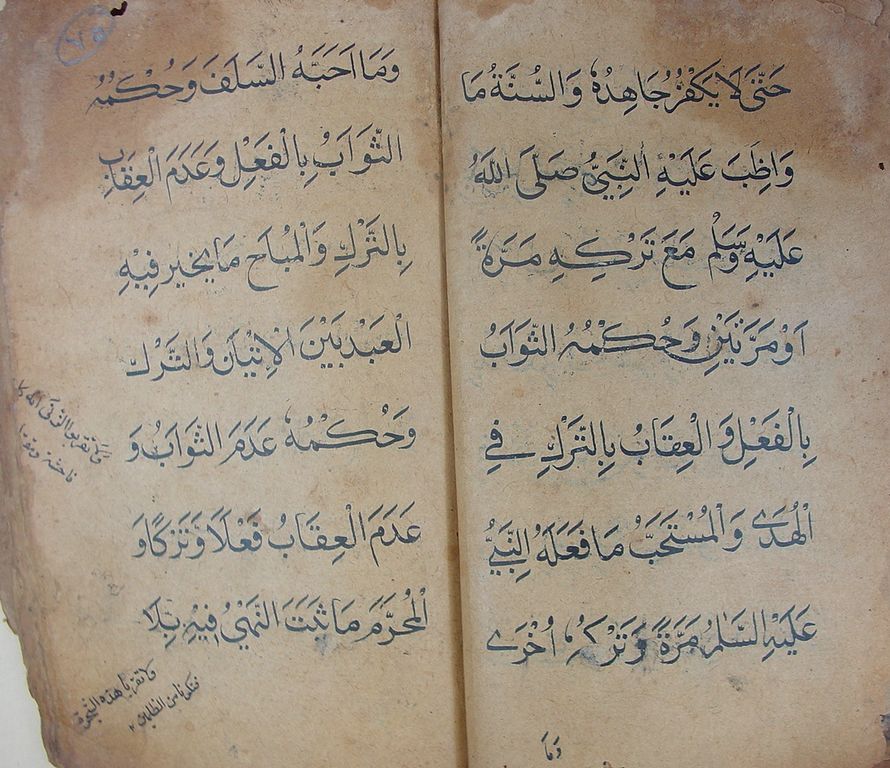 حَتّٰى لَا يَكْفُرُ جَاهِدُهُ وَالسُّنَّةُ مَا
وَاظَبَ عَلَيْهِ النَّبِيُّ صَلَى اللهُ
عَلَيْهِ وَسَلَّمْ مَعَ تَرْكِهِ مَرَّةً
اَوْ مَرَّتَيْنِ وَحُكْمُهُ الثَّوَابُ
بِالْفَعْلِ وَ الْعِقَابُ بِالتَّرْكِ فِي
الْهُدَى وَالْمُسْتَحَبُّ مَا فَعَلَهُ النَّبِيُّ
عَلَيْهِ السَّلَامُ مَرَّةً وَتَرْكَهُ اُخْرَى
وَمَا
٧٥
وَمَا اَحَبَّهُ السَّلَفَ وَحُكْمُهُ
الثَّوَابُ بِالْفَعْلِ وَعَدَمَ الْعِقَابِ
بِالتَّرْكِ وَالْمُبَاحِ مَا يُخَيَّر فِيْهِ
الْعَبْدِ بَيْنَ الْاِتْيَانِ وَالتَّرْكِ
وَحُكْمُهُ عَدَمَ الثَّوَابُ وَ
عَدَمَ الْعِقَابُ فَعْلًا وَتَرْكًا وَ
الْمُحَرَّمَ مَا ثَبَتَ النَّهْيُ فِيْهِ بِلَا
ولا تقربوا الزنى انه كا
ن فاحشة ومقتا
ولا تقربا هذه الشجرة
فتكونا من الظالمين